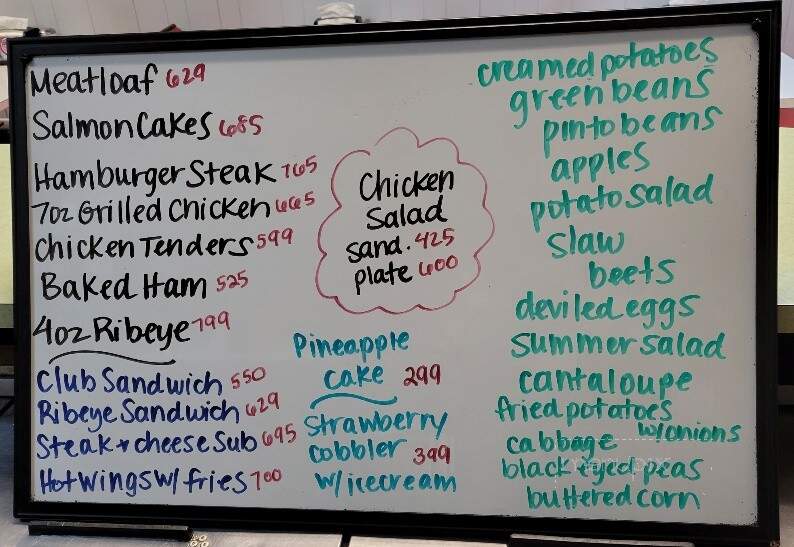 Meatloaf 629
Salmon Cakes 685
Hamburger Steak 765
7oz Grilled Chicken 665
Chicken Tenders 599
Baked Ham 525
4oz Ribeye 799
Club Sandwich 550
Ribeye Sandwich 629
Steak + cheese Sub 695
Hot Wings w/ fries 700
Chicken
Salad
sand. 425
plate 600
Pineapple
cake 299
Strawberry
cobbler 399
w/ icecream
creamed potatoes
green beans
pinto beans
apples
potato salad
slaw
beets
deviled eggs
summer salad
cantaloupe
fried potatoes
w/onions
cabbage
black eyed peas
buttered corn